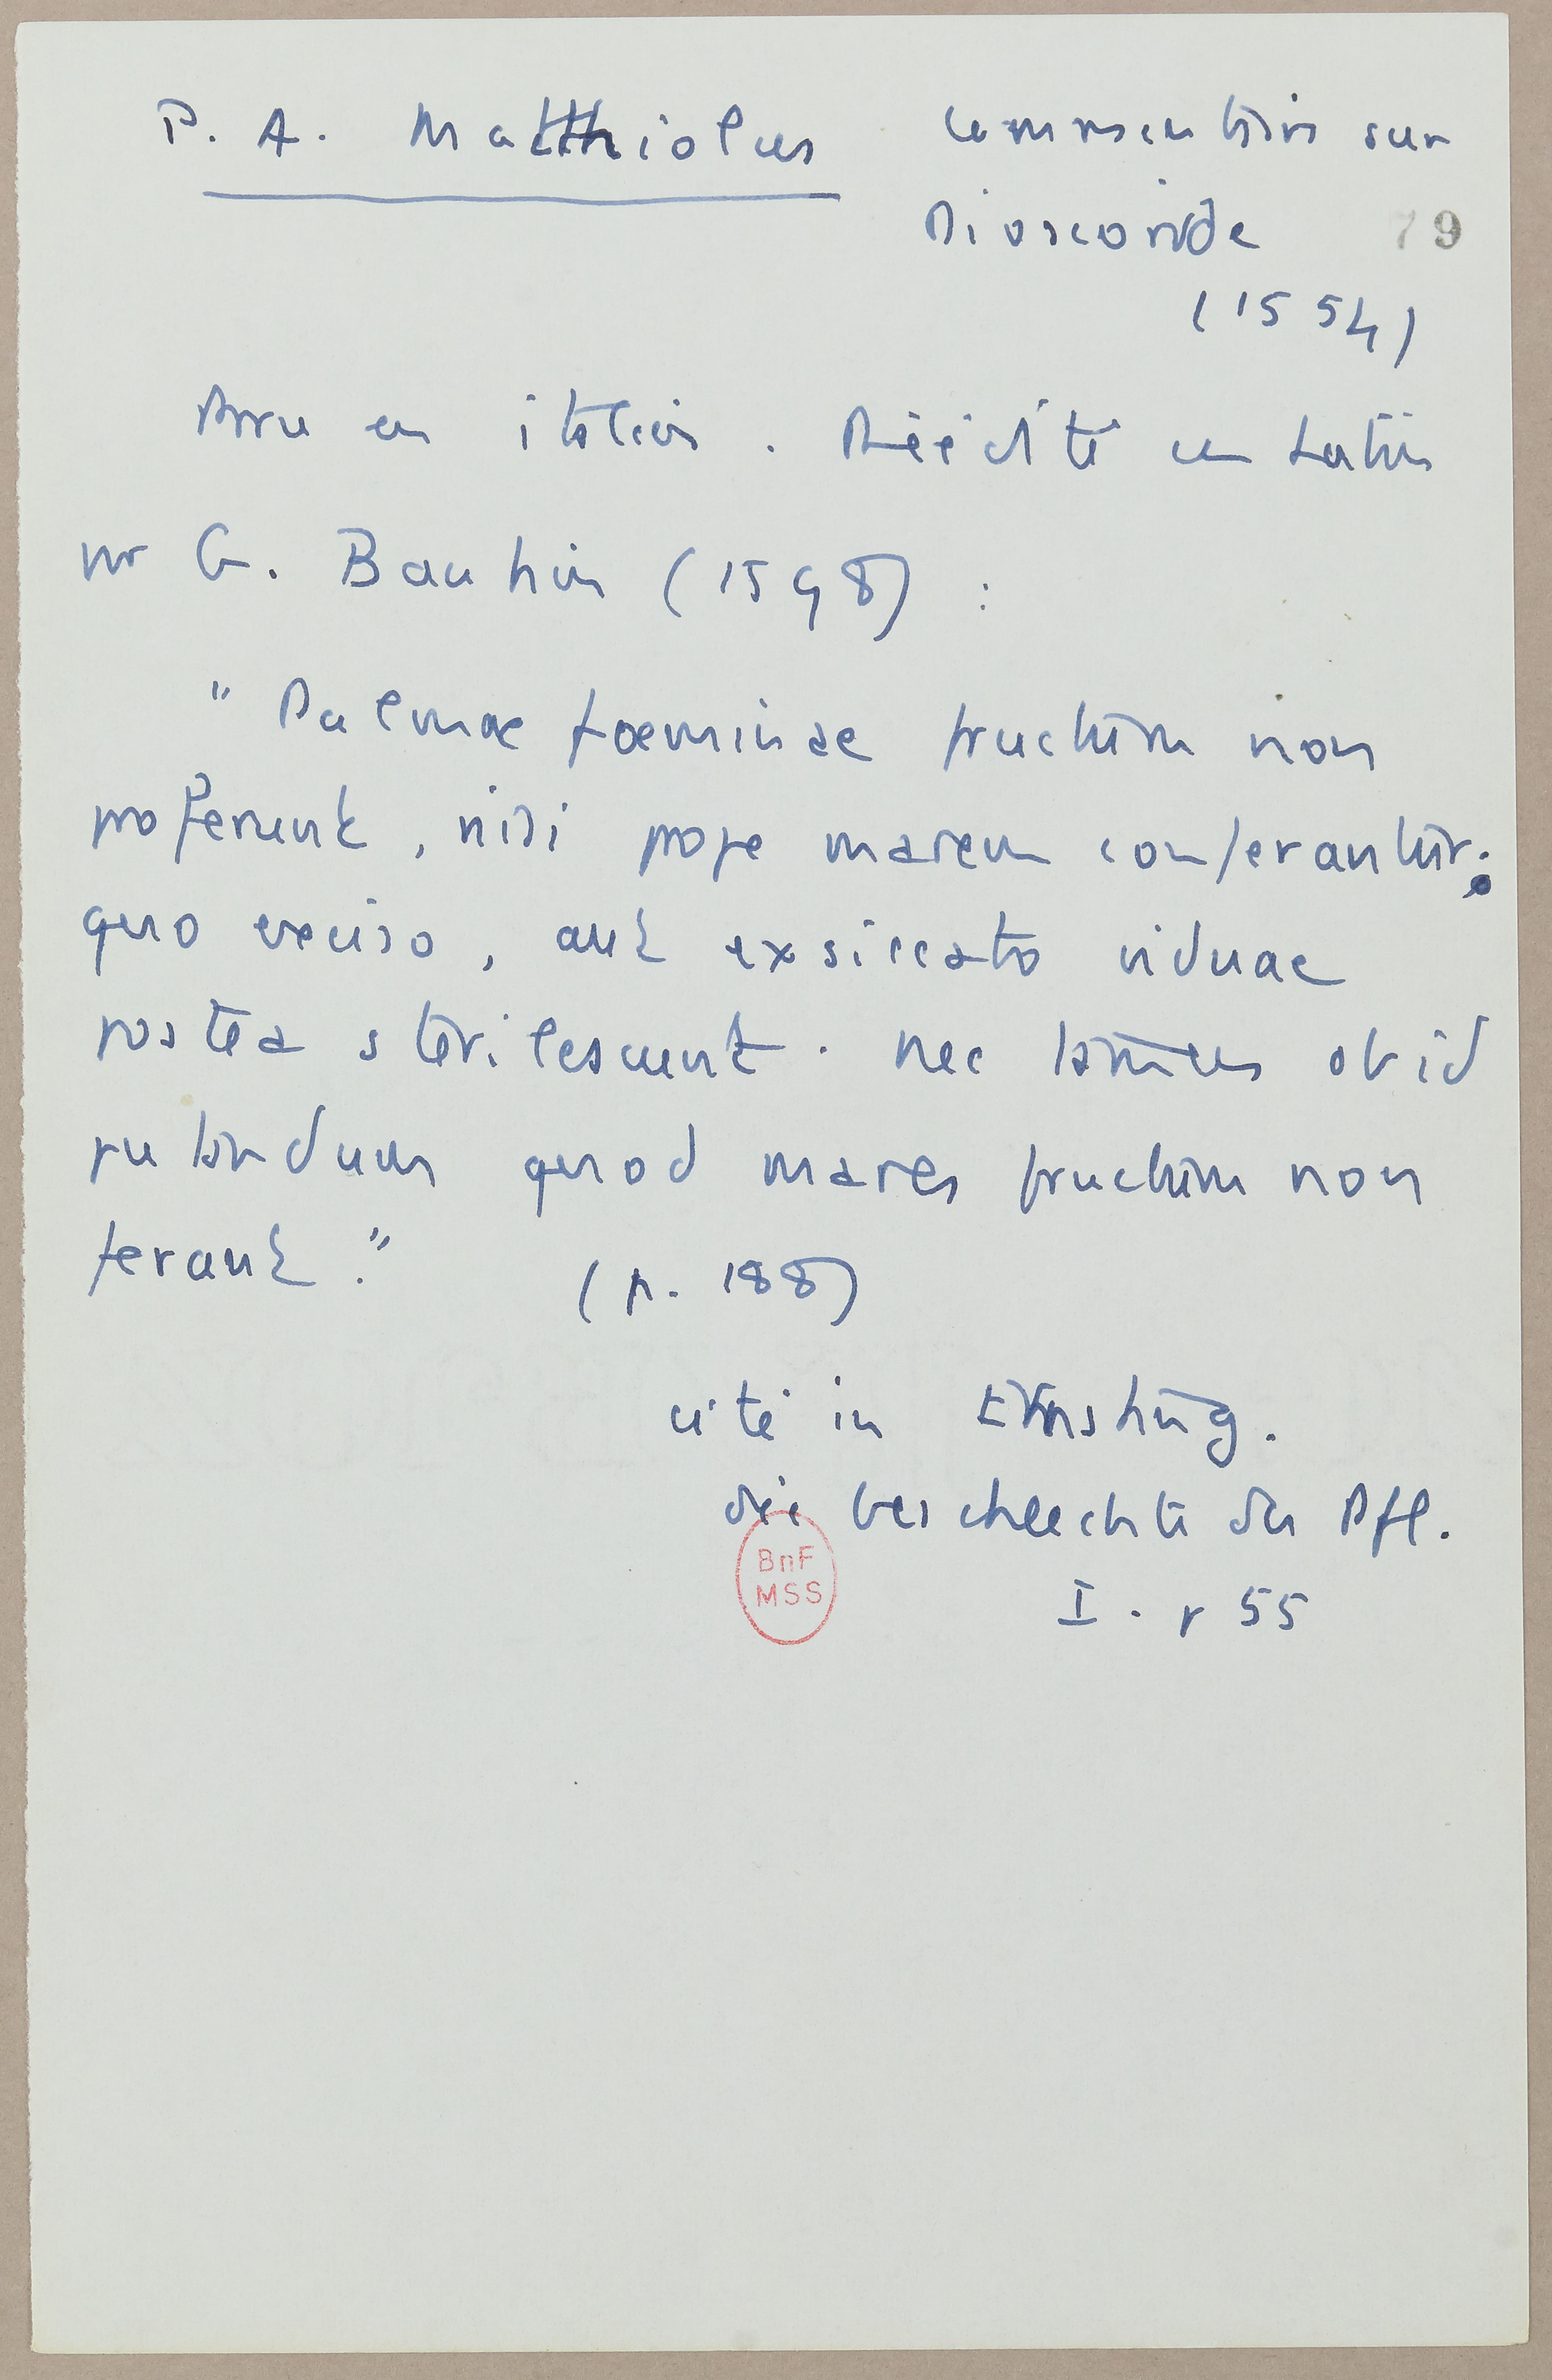 P. A. Matthiolus Commentaire sur
Dioscoride 79
(1554)
Paru en italien. Réédité en Latin
par G. Bauhin (1598) :
" Palmae foeminae fructum non
proferunt, nisi prope marem conserantur ;
quo exciso, aut exsiccato viduae
postea sterilescunt. nec tamen ob id
putandum quod mares fructum non
ferant." (p. 188)
cité in
die Geschlechte der Pfl.
BnF
MSS
I. p 55